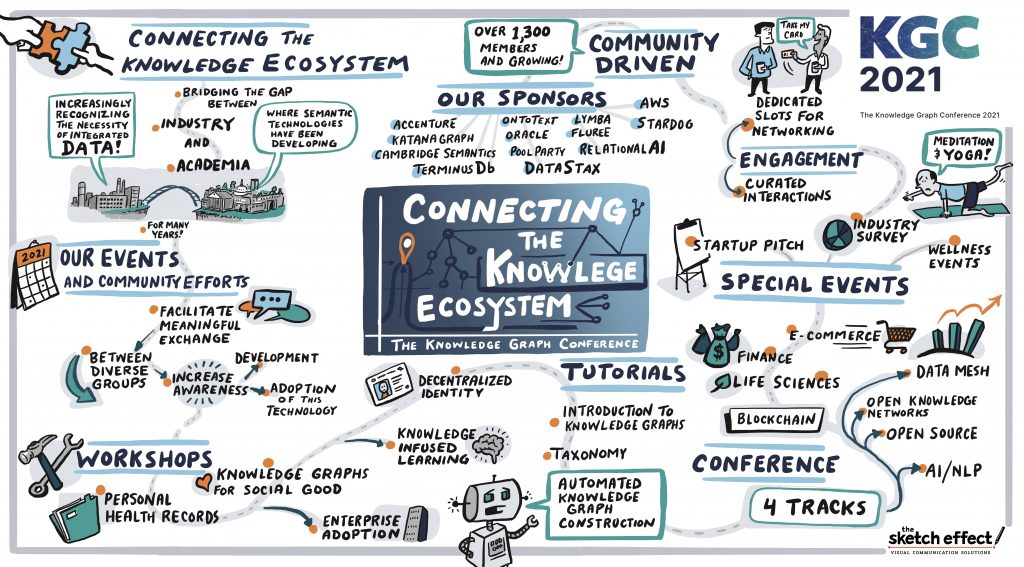 CONNECTING THE
KNOWLEDGE ECOSYSTEM
BRIDGING THE GAP
BETWEEN
INDUSTRY
AND
ACADEMIA
INCREASINGLY
RECOGNIZING
THE NECESSITY
OF INTEGRATED
DATA!
WHERE SEMANTIC
TECHNOLOGIES
HAVE BEEN
DEVELOPING
FOR MANY
YEARS!
OVER 1,300
MEMBERS
AND GROWING!
COMMUNITY
DRIVEN
OUR SPONSORS
ACCENTURE
KATANAGRAPH
CAMBRIDGE SEMANTICS
TERMINUSDb
ONTOTEXT
ORACLE
POOLPARTY
DATASTAX
LYMBA
FLUREE
RELATIONALAI
AWS
STARDOG
TAKE MY
CARD
DEDICATED
SLOTS FOR
NETWORKING
ENGAGEMENT
CURATED
INTERACTIONS
KGC
2021
The Knowledge Graph Conference 2021
MEDITATION
& YOGA!
2021
OUR EVENTS
AND COMMUNITY EFFORTS
FACILITATE
MEANINGFUL
EXCHANGE
BETWEEN
DIVERSE
GROUPS
INCREASE
AWARENESS
DEVELOPMENT
ADOPTION
OF THIS
TECHNOLOGY
CONNECTING
THE
KNOWLEGE
ECOSYSTEM
THE KNOWLEDGE GRAPH CONFERENCE
STARTUP PITCH
INDUSTRY
SURVEY
WELLNESS
EVENTS
SPECIAL EVENTS
$
FINANCE
E-COMMERCE
LIFE SCIENCES
DATA MESH
BLOCKCHAIN
OPEN KNOWLEDGE
NETWORKS
OPEN SOURCE
AI/NLP
CONFERENCE
4 TRACKS
TUTORIALS
DECENTRALIZED
IDENTITY
INTRODUCTION TO
KNOWLEDGE GRAPHS
TAXONOMY
AUTOMATED
KNOWLEDGE
GRAPH
CONSTRUCTION
WORKSHOPS
PERSONAL
HEALTH RECORDS
KNOWLEDGE GRAPHS
FOR SOCIAL GOOD
KNOWLEDGE
INFUSED
LEARNING
ENTERPRISE
ADOPTION
the
sketch effect
VISUAL COMMUNICATION SOLUTIONS